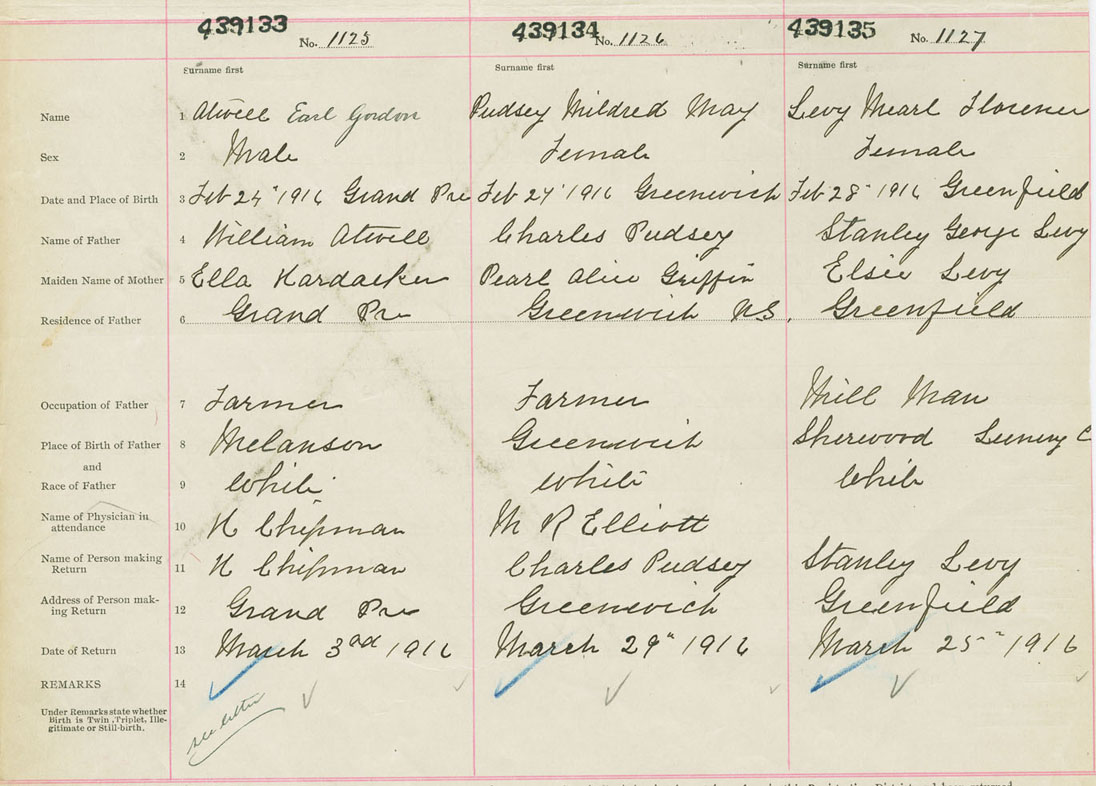 439133 No. 1125 439134 No. 1126 439135 No. 1127
Surname first Surname first Surname first
Name 1 Atwell Earl Gordon Pudsey Mildred May Levy Mearl Florence
Sex 2 Male Female Female
Date and Place of Birth 3 Feb 24" 1916 Grand Pre Feb 27' 1916 Greenwich Feb 28" 1916 Greenfield
Name of Father 4 William Atwell Charles Pudsey Stanley George Levy
Maiden Name of Mother 5 Ella Pearl Alice Griffin Elsie Levy
Residence of Father 6 Grand Pre Greenwich N.S. Greenfield
Occupation of Father 7 Farmer Farmer Mill Man
Place of Birth of Father 8 Melanson Greenwich Sherwood C
and
Race of Father 9 White White White
Name of Physician in
attendance 10 H Chipman M R Elliott
Name of Person making
Return 11 H Chipman Charles Pudsey Stanley Levy
Address of Person mak-
ing Return 12 Grand Pre Greenwich Greenfield
Date of Return 13 March 3rd 1916 March 29" 1916 March 25" 1916
REMARKS 14
Under Remarks state whether
Birth is Twin, Triplet, Ille-
gitimate or Still-birth.
see letter